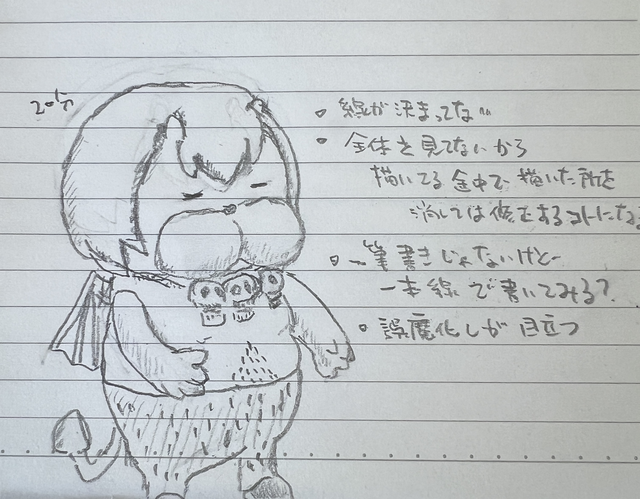 20分
。線が決まってない
。全体を見てないから
描いてる途中で描いた所を
消しては修正するコトになる
。一筆書きじゃないけど
一本線で書いてみる?
。誤魔化しが目立つ